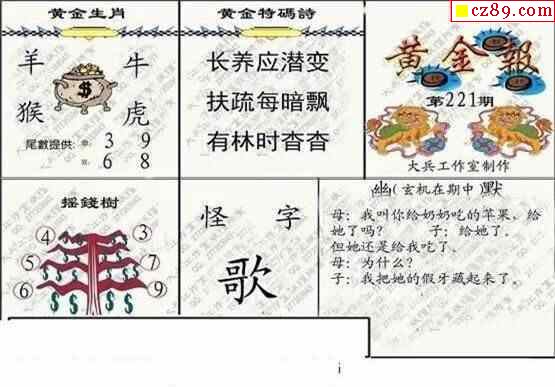 cz89.com
黄金生肖
羊 牛
$
猴 虎
尾數提供: 中 3 9
x 6 8
黄金特碼詩
长养应潜变
扶疏每暗飘
有林时杳杳
黄金報
第221期
大兵工作室制作
摇錢樹
④ ③
⑤ ⑦
⑥ ⑨
怪 字
歌
幽(玄机在期中)默
母: 我叫你给奶奶吃的苹果, 给
她了吗? 子: 给她了.
但她还是给我吃了.
母: 为什么?
子: 我把她的假牙藏起来了.
i